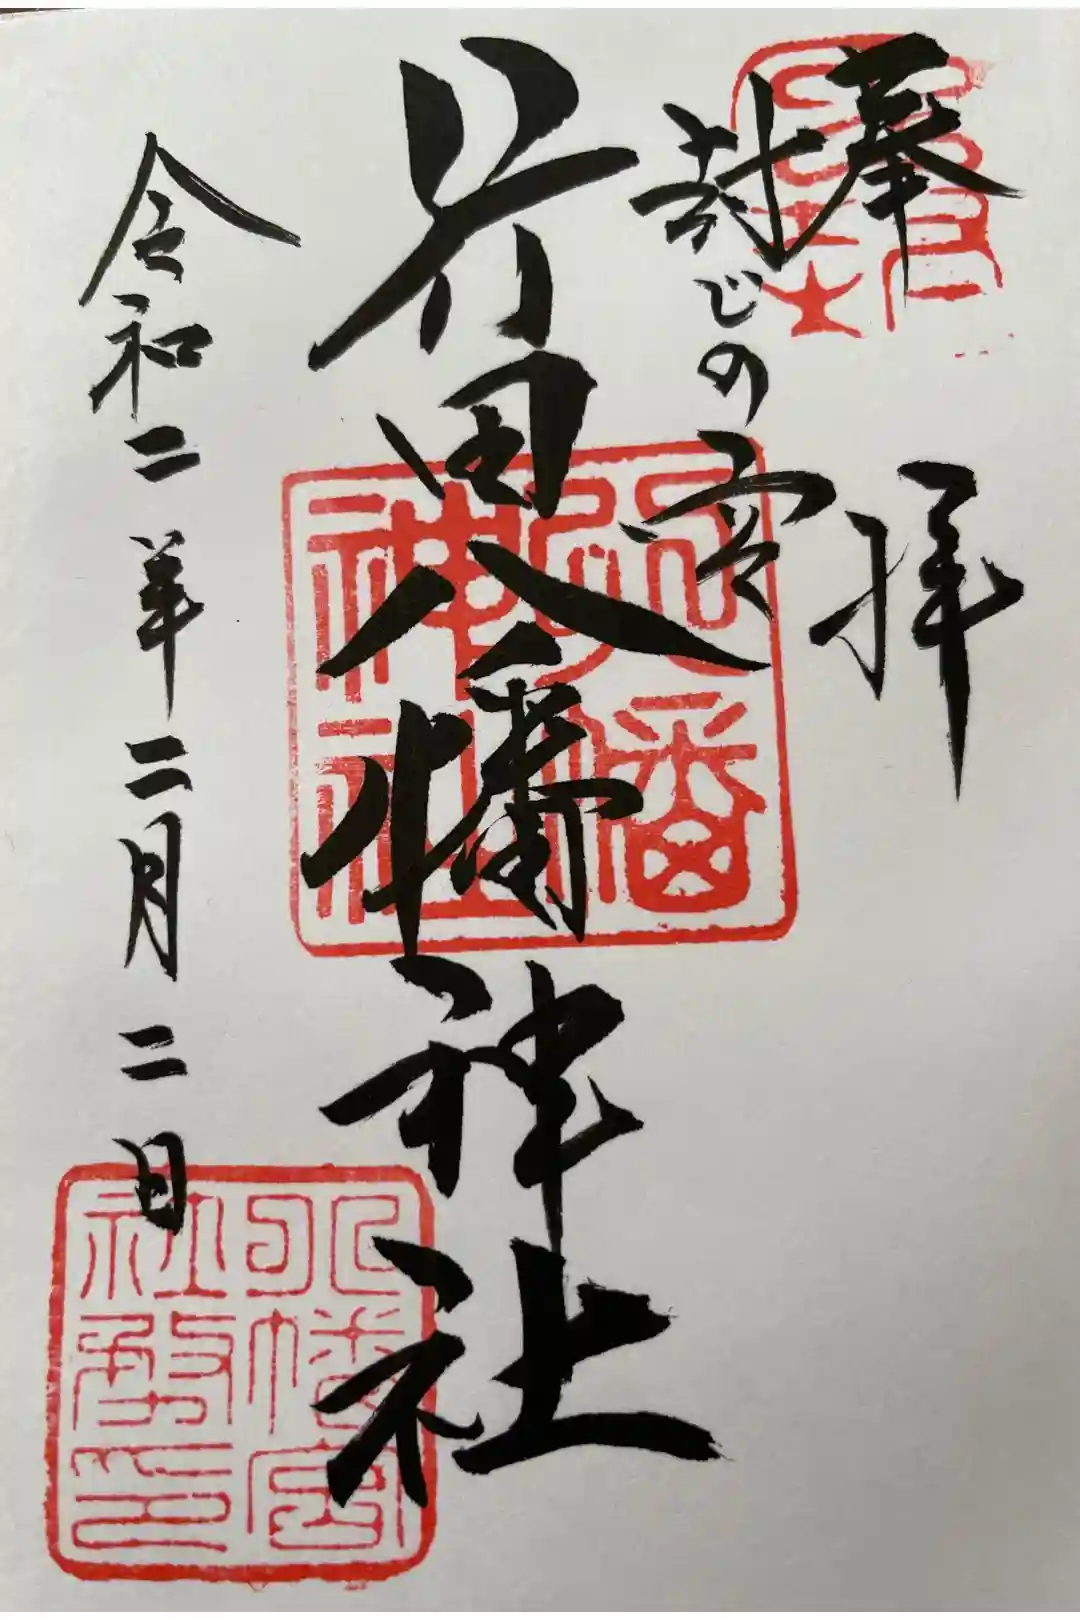 奉拝
封じの宮
田八幡神社
令和二年二月二日
八幡
神社
八幡宮
社務印